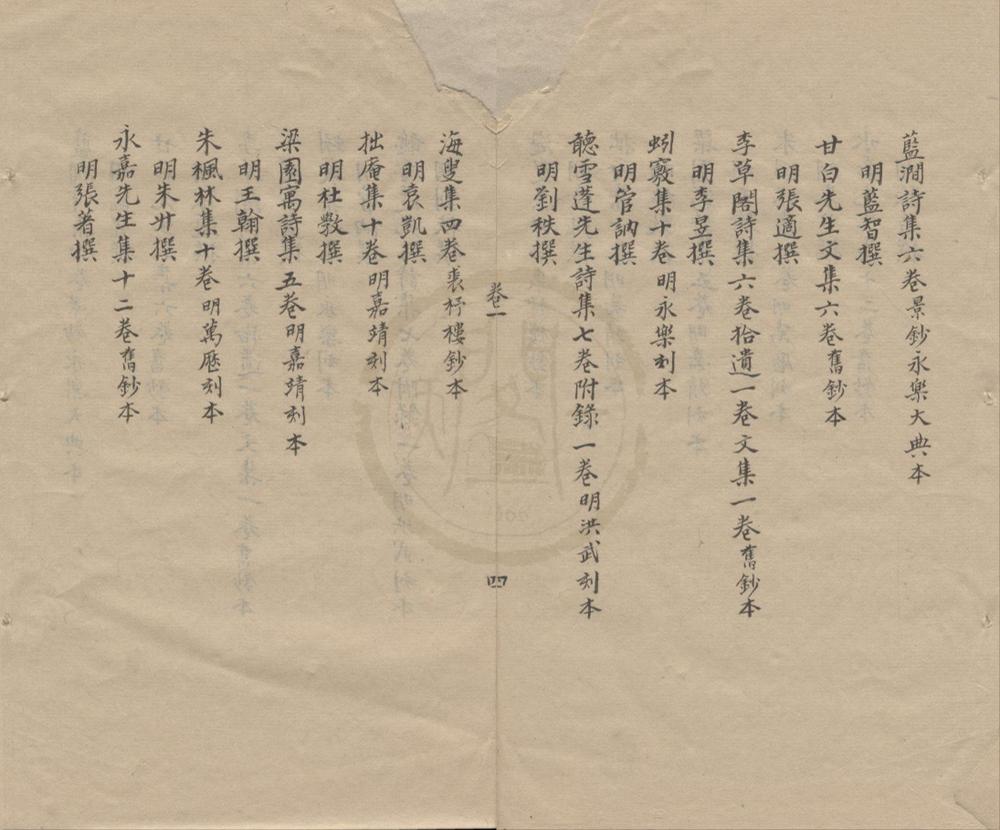 藍澗詩集六卷景鈔永樂大典本
明藍智撰
甘白先生文集六卷舊鈔本
明張適撰
李草閣詩集六卷拾遺一卷文集一卷舊鈔本
明李昱撰
蚓竅集十卷明永樂刻本
明管訥撰
聽雪蓬先生詩集七卷附錄一卷明洪武刻本
明劉秩撰
卷一
四
海叟集四卷裘杼樓鈔本
明袁凱撰
拙庵集十卷明嘉靖刻本
明杜斅撰
梁園寓詩集五卷明嘉靖刻本
明王翰撰
朱楓林集十卷明萬歷刻本
明朱升撰
永嘉先生集十二卷舊鈔本
明張著撰